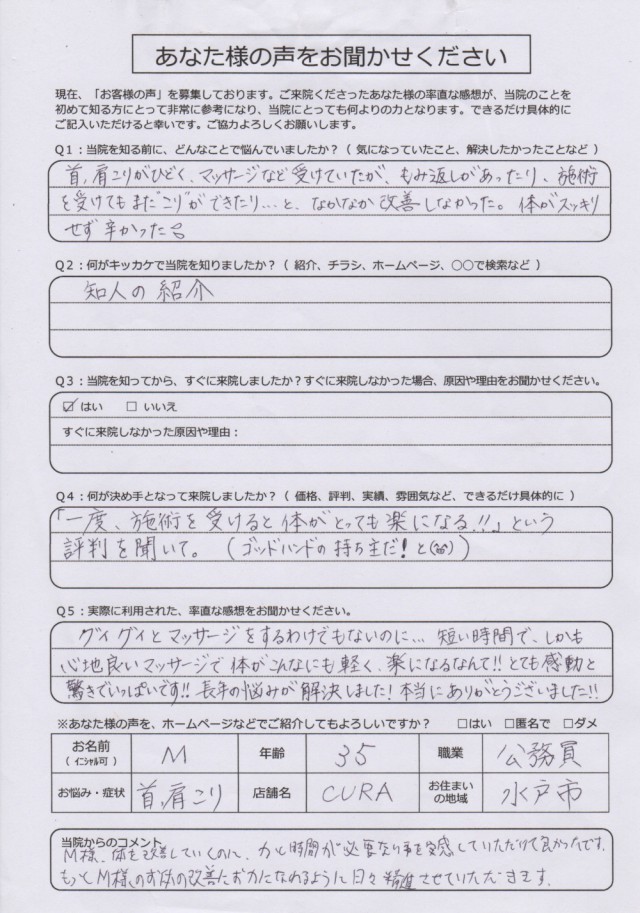 あなた様の声をお聞かせください
現在、「お客様の声」を募集しております。ご来院くださったあなた様の率直な感想が、当院のことを
初めて知る方にとって非常に参考になり、当院にとっても何よりの力となります。できるだけ具体的に
ご記入いただけると幸いです。ご協力よろしくお願いします。
Q1：当院を知る前に、どんなことで悩んでいましたか？（ 気になっていたこと、解決したかったことなど ）
首,肩こりがひどく、マッサージなど受けていたが、もみ返しがあったり、施術
を受けてもまた"こり"ができたり…と、なかなか改善しなかった。体がスッキリ
せず辛かった
Q2：何がキッカケで当院を知りましたか？（ 紹介、チラシ、ホームページ、○○で検索など ）
知人の紹介
Q3：当院を知ってから、すぐに来院しましたか？すぐに来院しなかった場合、原因や理由をお聞かせください。
☑ はい　□ いいえ
すぐに来院しなかった原因や理由：
Q4：何が決め手となって来院しましたか？（ 価格、評判、実績、雰囲気など、できるだけ具体的に ）
「一度、施術を受けると体がとっても楽になる!!」という
評判を聞いて。（ゴッドハンドの持ち主だ！と）
Q5：実際に利用された、率直な感想をお聞かせください。
グイグイとマッサージをするわけでもないのに… 短い時間で、しかも
心地良いマッサージで体がこんなにも軽く、楽になるなんて!! とても感動と
驚きでいっぱいです!! 長年の悩みが解決しました！本当にありがとうございました!!
※あなた様の声を、ホームページなどでご紹介してもよろしいですか？　□はい　□匿名で　□ダメ
お名前（イニシャル可） M 年齢 35 職業 公務員
お悩み・症状 首,肩こり 店舗名 CURA お住まいの地域 水戸市
当院からのコメント
M様、体を改善していくのに、力と時間が必要ない事を実感していただけて良かったです。
もっとM様のお体の改善にお力になれるように日々精進させていただきます。